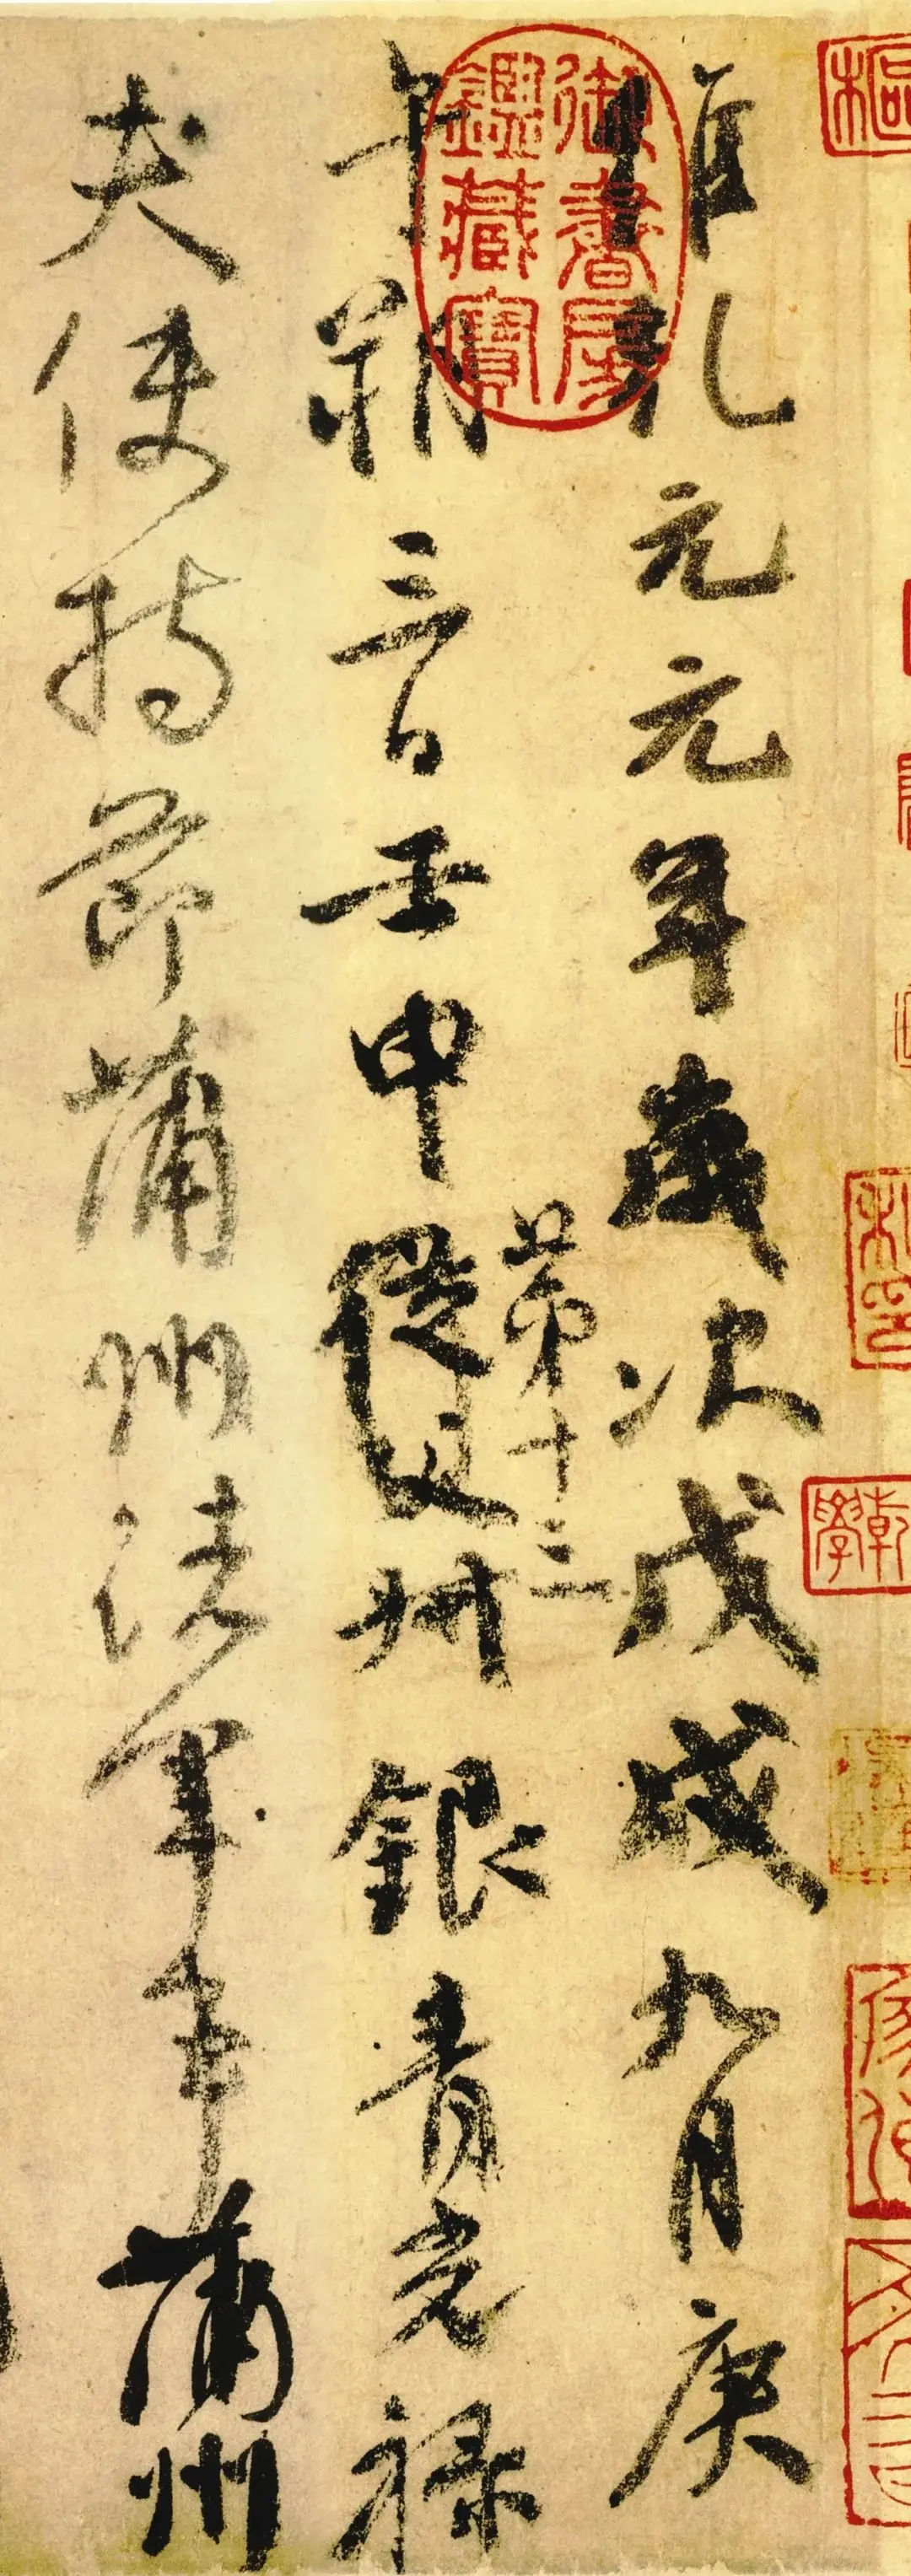 維乾元元年歲次戊戌九月庚
午朔三日壬申
第十三
從父叔銀青光祿
夫使持節蒲州諸軍事蒲州
御書房鑑藏寶
乾
學